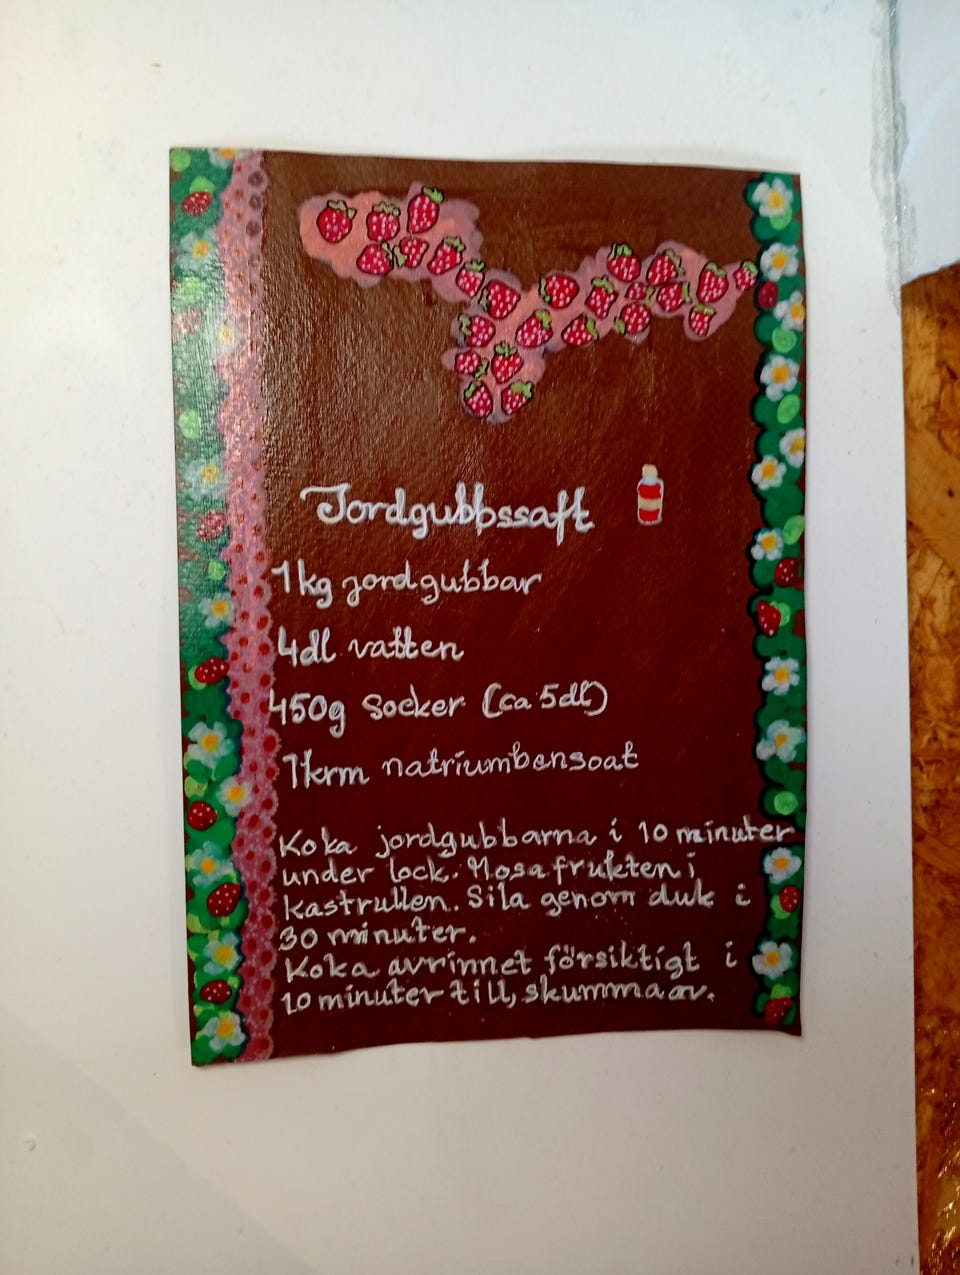 Jordgubbssaft
1kg jordgubbar
4dl vatten
450g Socker (ca 5dl)
1krm natriumbensoat
Koka jordgubbarna i 10 minuter
under lock. Mosa frukten i
kastrullen. Sila genom duk i
30 minuter.
Koka avrinnet försiktigt i
10 minuter till, skumma av.